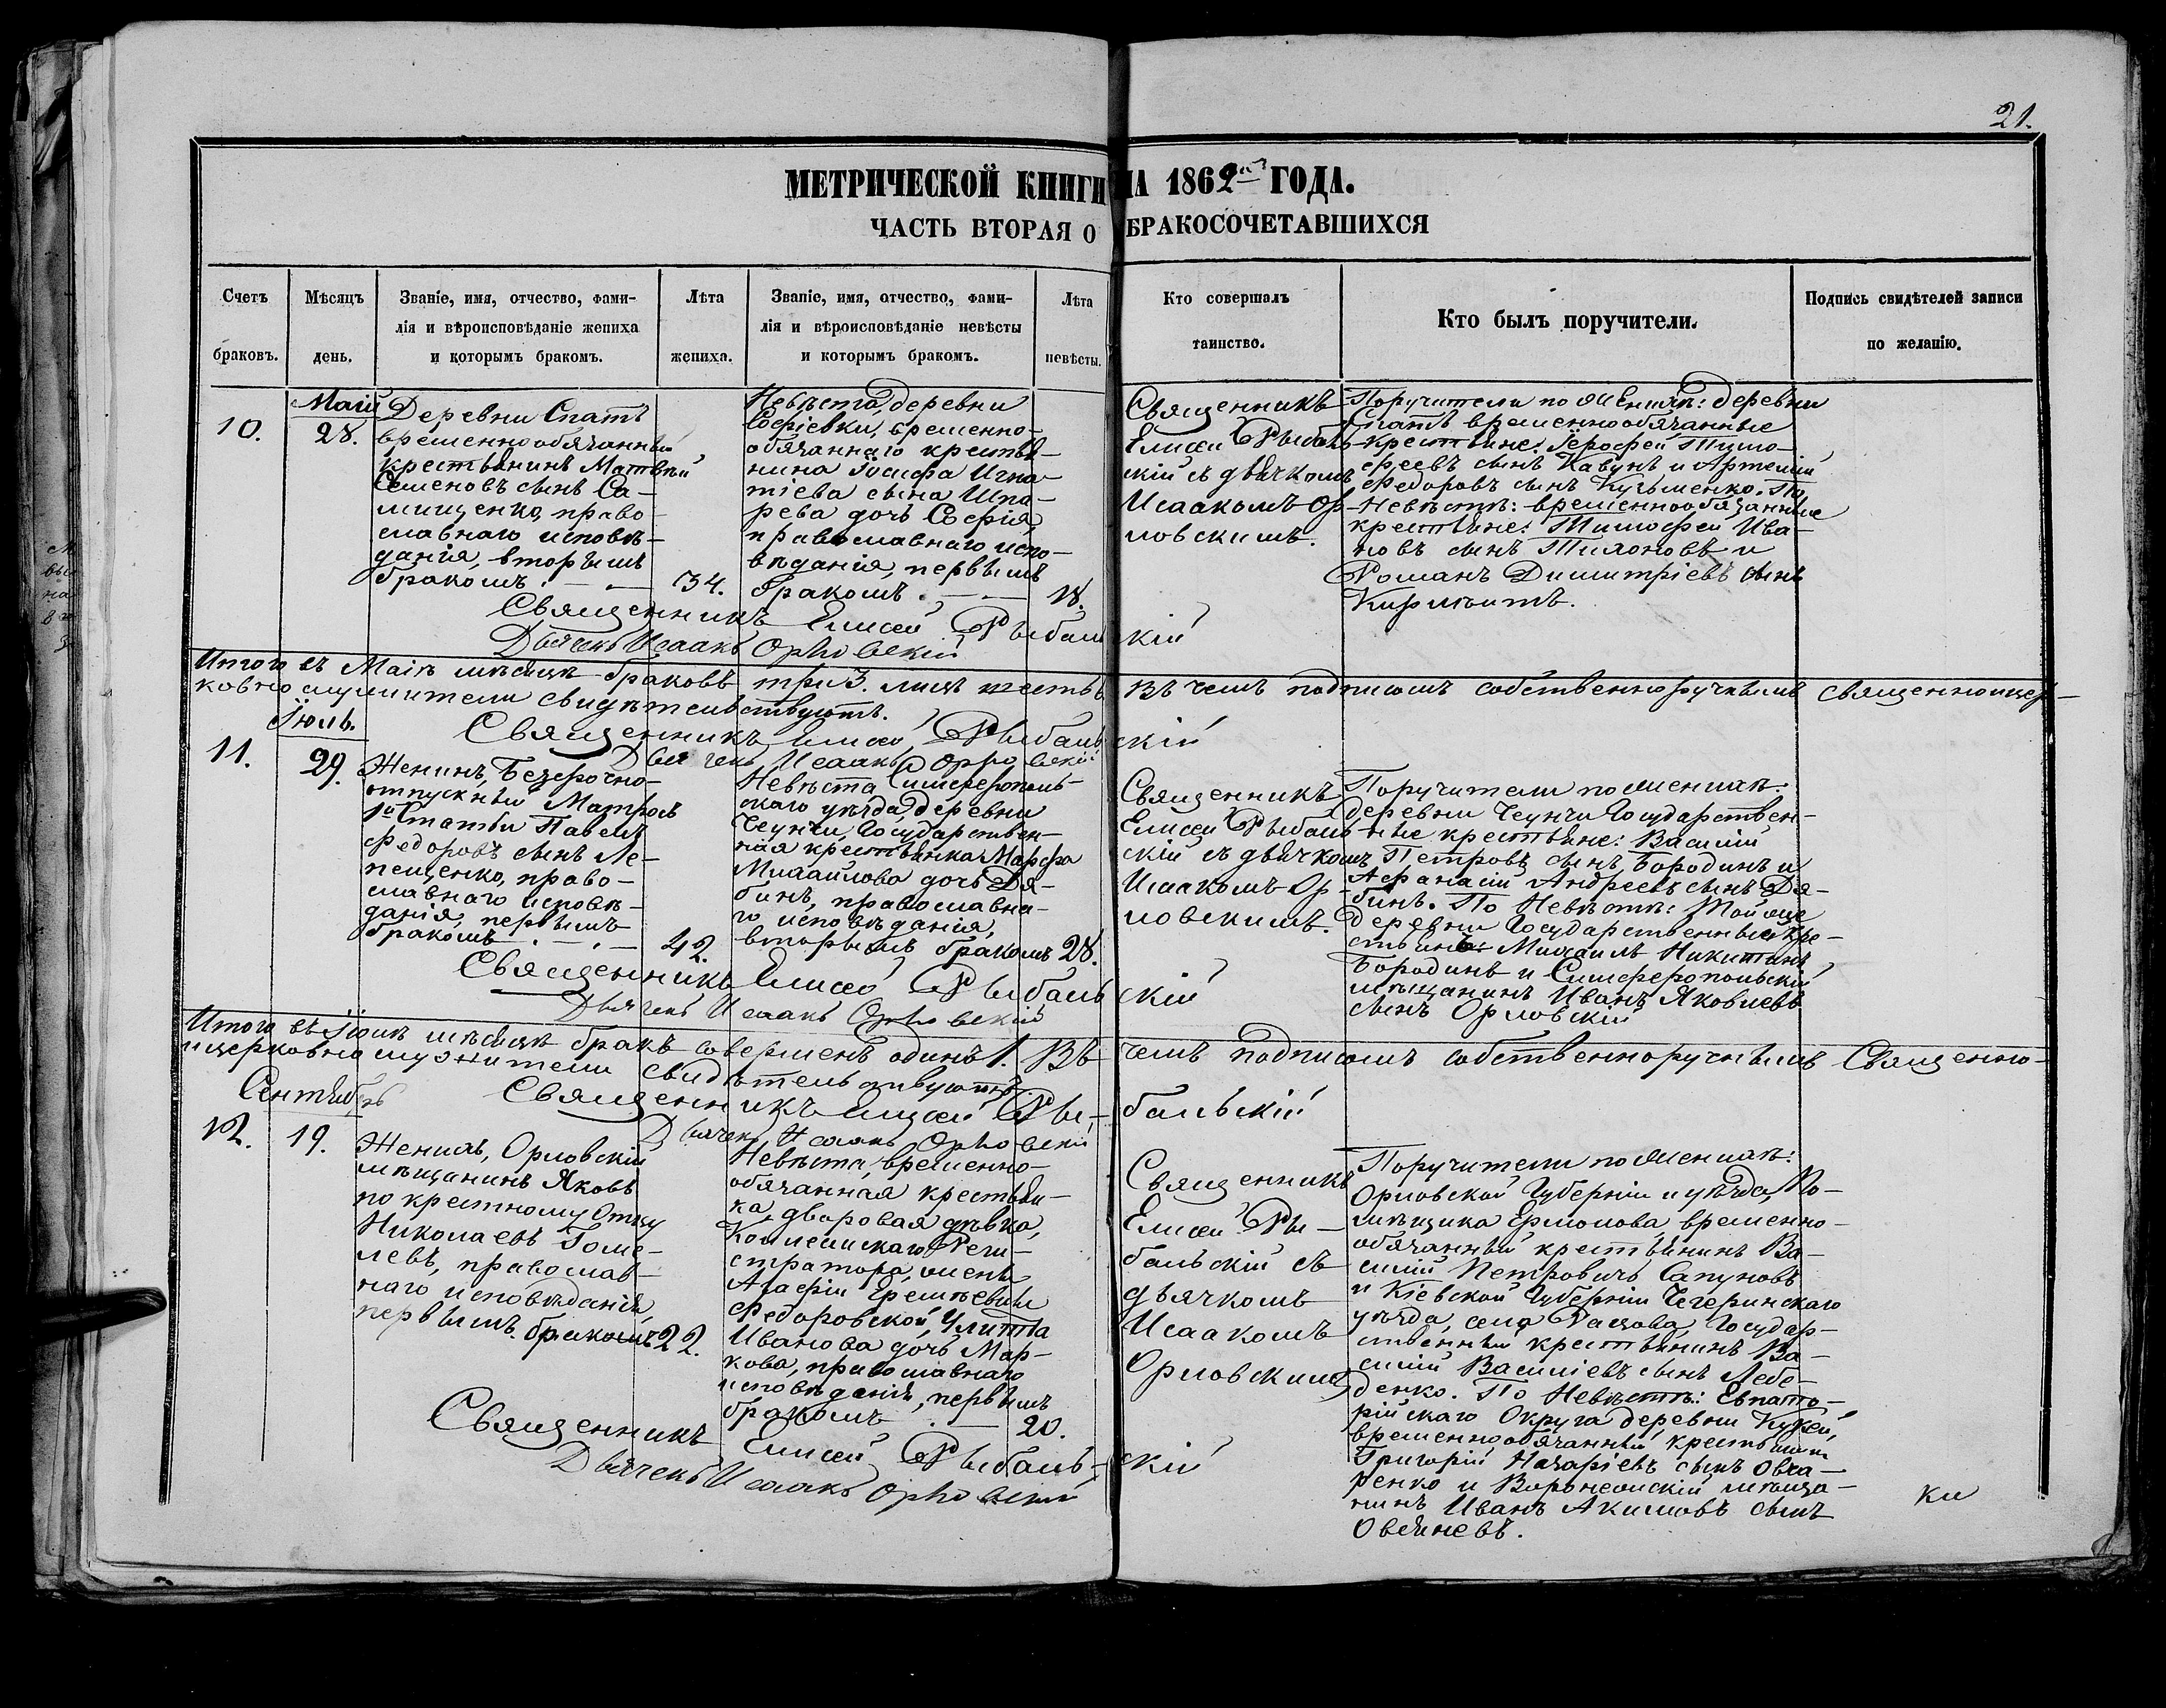 21.
МЕТРИЧЕСКОЙ КНИГИ НА 1862й ГОДА.
ЧАСТЬ ВТОРАЯ О БРАКОСОЧЕТАВШИХСЯ
Счетъ браковъ.
Мѣсяцъ день.
Званіе, имя, отчество, фами-
лія и вѣроисповѣданіе жениха
и которымъ бракомъ.
Лѣта жениха.
Званіе, имя, отчество, фами-
лія и вѣроисповѣданіе невѣсты
и которымъ бракомъ.
Лѣта невѣсты.
Кто совершалъ
таинство.
Кто былъ поручители.
Подпись свидѣтелей записи
по желанію.
10.
Маій
28.
Деревни Спатъ
временнообязанный
крестьянинъ Матвѣй
Семеновъ сынъ Са-
мищенко, право-
славнаго исповѣ-
данія, вторымъ
бракомъ.
34.
Невѣста, деревни
Софіевки, временно-
обязаннаго крестья-
нина Іосифа Игна-
тіева сына Шпа-
рева дочь Софія,
православнаго испо-
вѣданія, первымъ
бракомъ.
18.
Священникъ
Елисей Рыбаль-
скій съ дьячкомъ
Исаакомъ Ор-
ловскимъ.
Поручители по женихѣ: деревни
Спатъ временнообязанные
крестьяне: Іерофей Тимо-
феевъ сынъ Кавунъ и Артемій
Федоровъ сынъ Кузьменко. По
Невѣстѣ: временнообязанные
крестьяне: Тимофей Ива-
новъ сынъ Тихоновъ и
Романъ Димитріевъ сынъ
Священникъ Елисей Рыбальскій
Дьячекъ Исаакъ Орловскій
Итого въ Маіѣ мѣсяцѣ браковъ три 3. лицъ шесть въ чемъ подписомъ собственноручнымъ священноицер-
ковнослужители свидѣтельствуютъ.
Священникъ Елисей Рыбальскій
Дьячекъ Исаакъ Орловскій
Іюль.
11.
29.
Женихъ, Безсрочно-
отпускный Матросъ
1й Статьи Павелъ
Федоровъ сынъ Ле-
пещенко, право-
славнаго исповѣ-
данія, первымъ
бракомъ.
42.
Невѣста Симферополь-
скаго уѣзда, деревни
Чеунчи, Государствен-
ная крестьянка Марфа
Михайлова дочь Дя-
бинъ, православна-
го исповѣданія,
вторымъ бракомъ
28.
Священникъ
Елисей Рыбаль-
скій съ дьячкомъ
Исаакомъ Ор-
ловскимъ.
Поручители по женихѣ:
деревни Чеунчи Государствен-
ные крестьяне: Василій
Петровъ сынъ Бородинъ и
Афанасій Андреевъ сынъ Дя-
бинъ. По Невѣстѣ: Той же
деревни Государственный кре-
стьянинъ Михаилъ Никитинъ
Бородинъ и Симферопольскій
мѣщанинъ Иванъ Яковлевъ
сынъ Орловскій
Священникъ Елисей Рыбальскій
Дьячекъ Исаакъ Орловскій
Итого въ Іюлѣ мѣсяцѣ бракъ совершенъ одинъ 1. Въ чемъ подписомъ собственноручнымъ Священно-
ицерковнослужители свидѣтельствуютъ.
Священникъ Елисей Рыбальскій
Дьячекъ Исаакъ Орловскій
Сентябрь
12.
19.
Женихъ, Орловскій
мѣщанинъ Яковъ
по крестному Отцу
Николаевъ Гоме-
левъ, православ-
наго исповѣданія,
первымъ бракомъ
22.
Невѣста, временно-
обязанная крестьян-
ка, дворовая дѣвка,
Коллежскаго Реги-
стратора, жены
Агафіи Еремѣевны
Федоровской, Улитта
Иванова дочь Мар-
кова, православнаго
исповѣданія, первымъ
бракомъ.
20.
Священникъ
Елисей Ры-
бальскій съ
дьячкомъ
Исаакомъ
Орловскимъ
Поручители по женихѣ:
Орловской Губерніи и уѣзда, По-
мѣщика Ермолова, временно-
обязанный крестьянинъ Ва-
силій Петровичъ Сапуновъ
и Кіевской Губерніи Чегеринскаго
уѣзда, села Рацова, Государ-
ственный крестьянинъ Ва-
силій Василіевъ сынъ Лебе-
денко. По Невѣстѣ: Евпато-
рійскаго Округа деревни
временнообязанный крестьянинъ
Григорій Назаріевъ сынъ Овча-
ренко и Воронежскій мѣща-
нинъ Иванъ Акимовъ сынъ
Овсяневъ.
Священникъ Елисей Рыбальскій
Дьячекъ Исаакъ Орловскій
ки